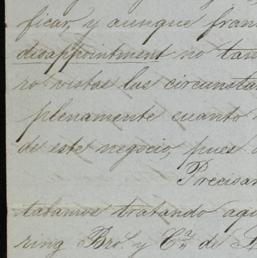 ficar, y aunque fran
disappointment no tan
ro vistas las circunsta
plenamente cuanto
de este negocio, pues
Precisa
tabamos tratando aqu
ring Bro. y Ca. de L